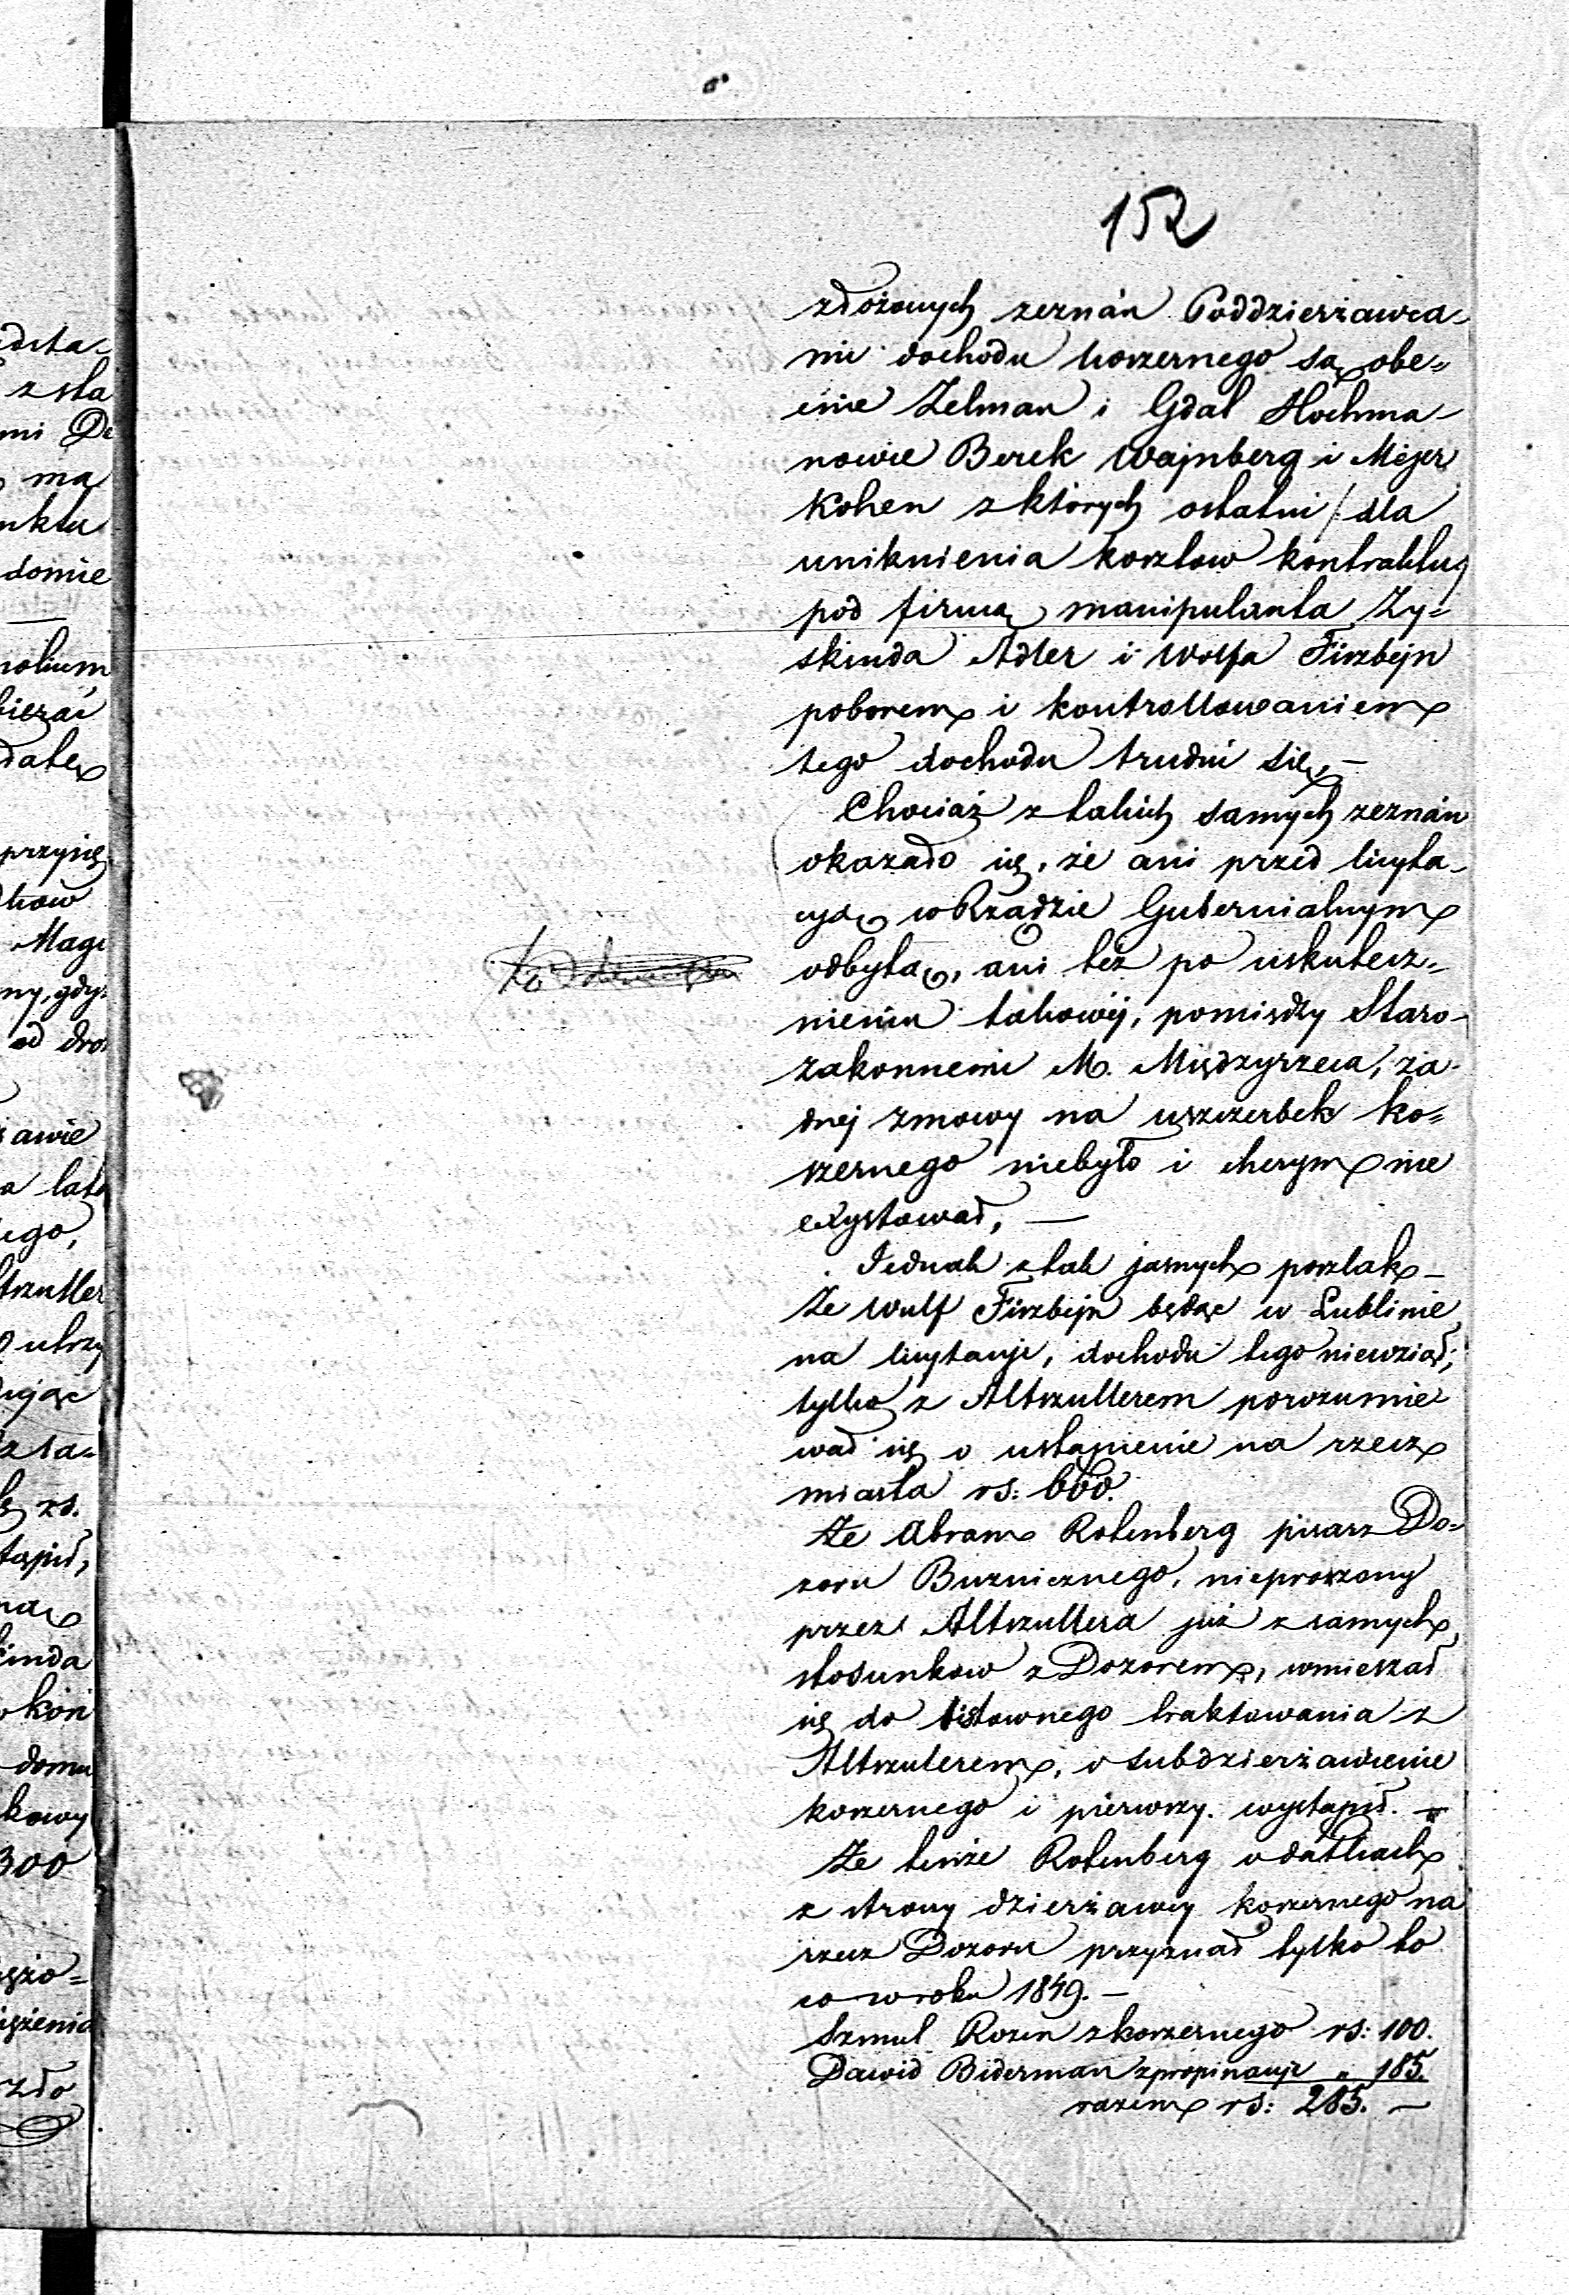 152
złożonych zeznań Poddzierżawca-
mi dochodu koszernego są obe=
cnie Zelman i Gdal Hochma-
nowie Berek Wajnberg i Mejer
Kohen z których ostatni /: dla
uniknienia kosztow kontraktu
pod firmą manipulanta Zy=
skinda Adler i Wolfa Firzbejn
poborem i kontrollowaniem
tego dochodu trudni się, —
Chociaż z takich samych zeznań
okazało się, że ani przed licyta-
cyą w Rządzie Gubernialnym
odbytą, ani też po uskutecz-
nieniu takowéj, pomiędzy Staro-
zakonnemi M. Międzyrzeca, ża-
dnej zmowy na uszczerbek ko=
szernego niebyło i cherym nie
exystował, —
Jednak z tak jasnych poszlak —
Że Wulf Firzbejn będąc w Lublinie
na licytacji, dochodu tego niewziął,
tylko z Altszullerem porozumie
wał się o ustąpienie na rzecz
miasta rs: 600.
Że Abram Rotenberg pisarz Do=
zoru Buznicznego, nieproszony
przez Altszullera już z samych
stosunkow z Dozorem, wmieszał
się do listownego traktowania z
Altszulerem, o subdzierżawienie
koszernego i pierwszy wystąpił. —
Że tenże Rotenberg o datkach
z strony dzierżawcy koszernego na
rzecz Dozoru przyznał tylko to
co w roku 1849. —
Szmul Rozen z koszernego rs: 100.
Dawid Biderman z propinacji „ 185.
razem rs: 285. —